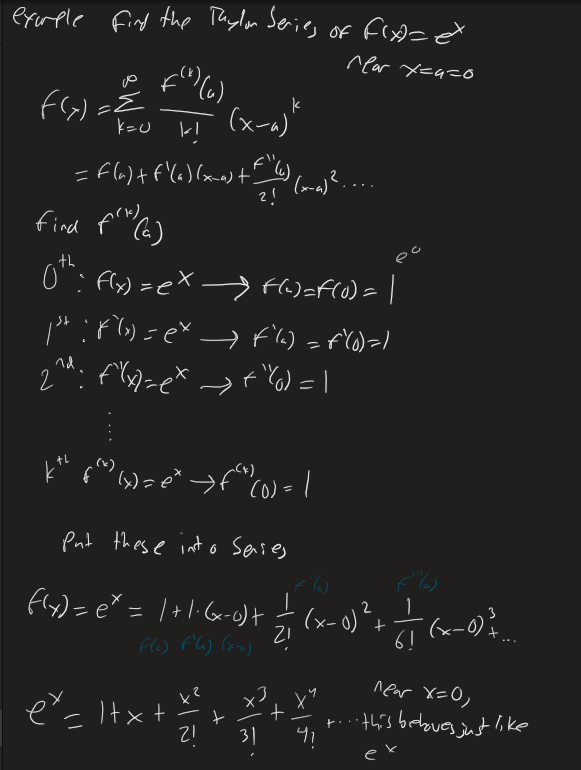 example find the Taylor Series of f(x) = e^x
near x=a=0
f(x) = ∑_{k=0}^{∞} f^{(k)}(a)/k! (x-a)^k
= f(a) + f'(a)(x-a) + f''(a)/2! (x-a)^2 ....
find f^{(k)}(a)
e^0
0^th: f(x) = e^x → f(a) = f(0) = 1
1^st: f'(x) = e^x → f'(a) = f'(0) = 1
2^nd: f''(x) = e^x → f''(0) = 1
⋮
k^th f^{(k)}(x) = e^x → f^{(k)}(0) = 1
Put these into Series
f''(a) f'''(a)
f(x) = e^x = 1 + 1·(x-0) + 1/2! (x-0)^2 + 1/6! (x-0)^3 + ...
f(a) f'(a) (x-a)
e^x = 1 + x + x^2/2! + x^3/3! + x^4/4! + ... this behaves just like
near x=0,
e^x